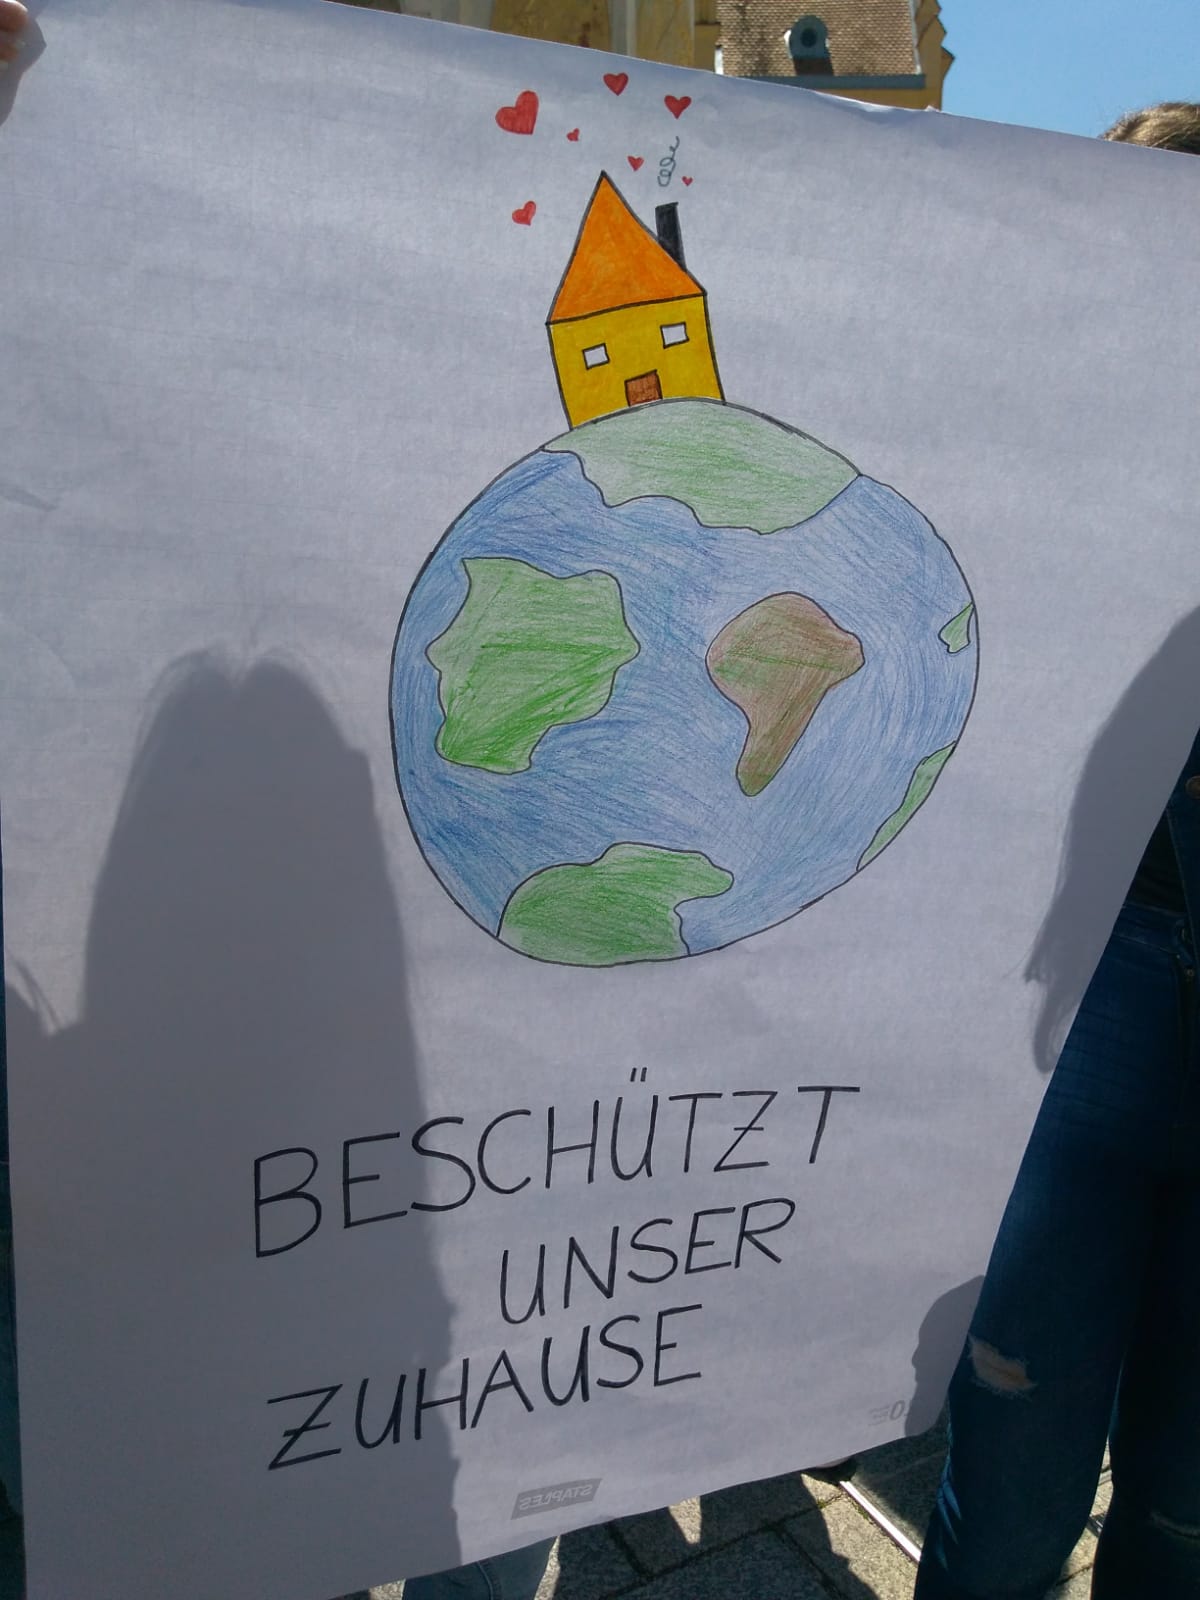 BESCHÜTZT
UNSER
ZUHAUSE
STAPLES